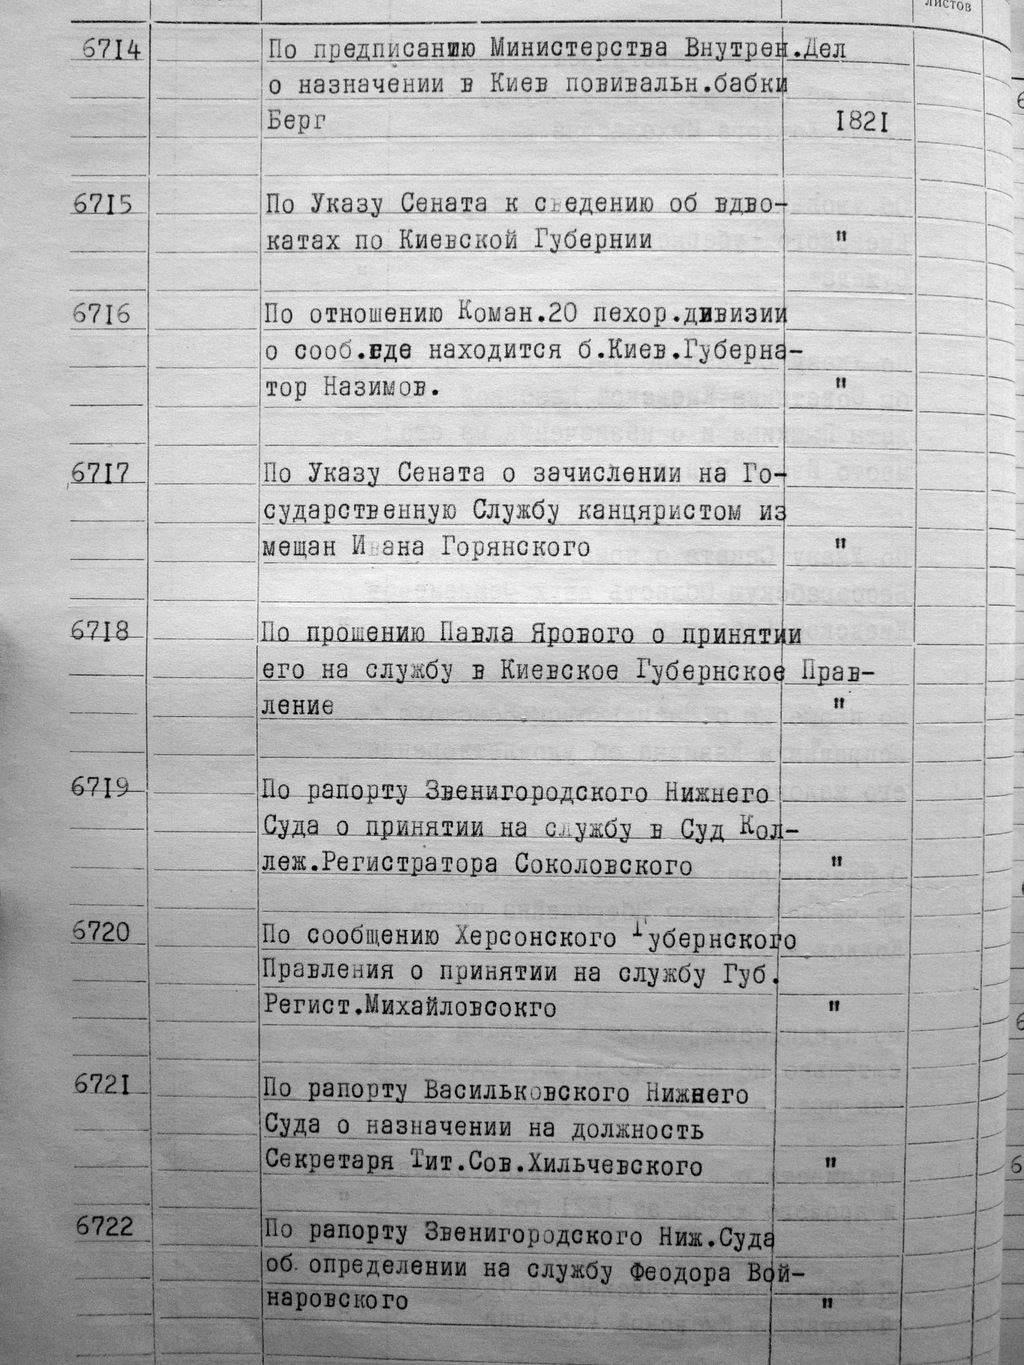 листов
6714 По предписанию Министерства Внутрен.Дел
о назначении в Киев повивальн.бабки
Берг 1821
6715 По Указу Сената к сведению об вдво-
катах по Киевской Губернии "
6716 По отношению Коман.20 пехор.дивизии
о сооб.где находится б.Киев.Губерна-
тор Назимов. "
6717 По Указу Сената о зачислении на Го-
сударственную Службу канцяристом из
мещан Ивана Горянского "
6718 По прошению Павла Ярового о принятии
его на службу в Киевское Губернское Прав-
ление "
6719 По рапорту Звенигородского Нижнего
Суда о принятии на службу в Суд Кол-
леж.Регистратора Соколовского "
6720 По сообщению Херсонского Губернского
Правления о принятии на службу Губ.
Регист.Михайловсокго "
6721 По рапорту Васильковского Нижнего
Суда о назначении на должность
Секретаря Тит.Сов.Хильчевского "
6722 По рапорту Звенигородского Ниж.Суда
об определении на службу Феодора Вой-
наровского "